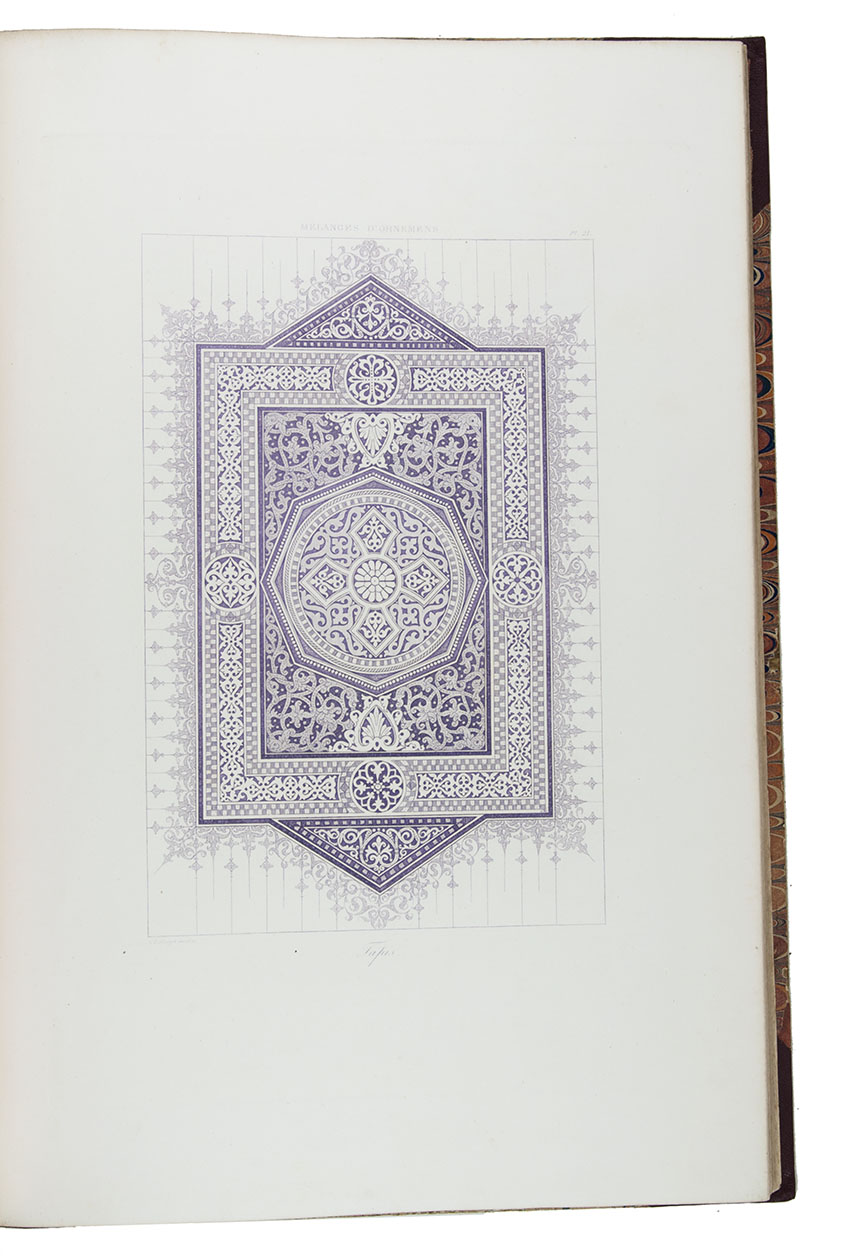 MÉLANGES D'ORNEMENS.
Pl. 21.
Tapis